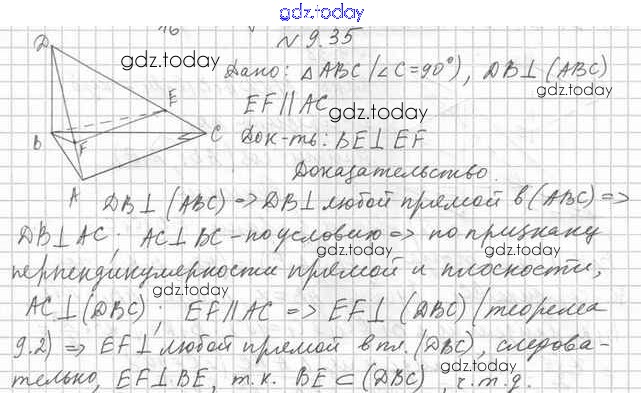 gdz.today
16
N 9.35
D
gdz.today
Дано: △ABC (∠C=90°), DB⊥(ABC)
gdz.today
EF∥AC
gdz.today
E
Док-ть: BE⊥EF
B
C
F
A
Доказательство.
gdz.today
DB⊥(ABC) => DB⊥любой прямой в (ABC) =>
DB⊥AC; AC⊥BC - по условию => по признаку
gdz.today
gdz.today
перпендикулярности прямой и плоскости,
gdz.today
AC⊥(DBC); EF∥AC => EF⊥(DBC) (теорема
9.2) => EF⊥любой прямой в пл. (DBC), следова-
gdz.today
gdz.today
тельно, EF⊥BE, т.к. BE⊂(DBC), ч.т.д.